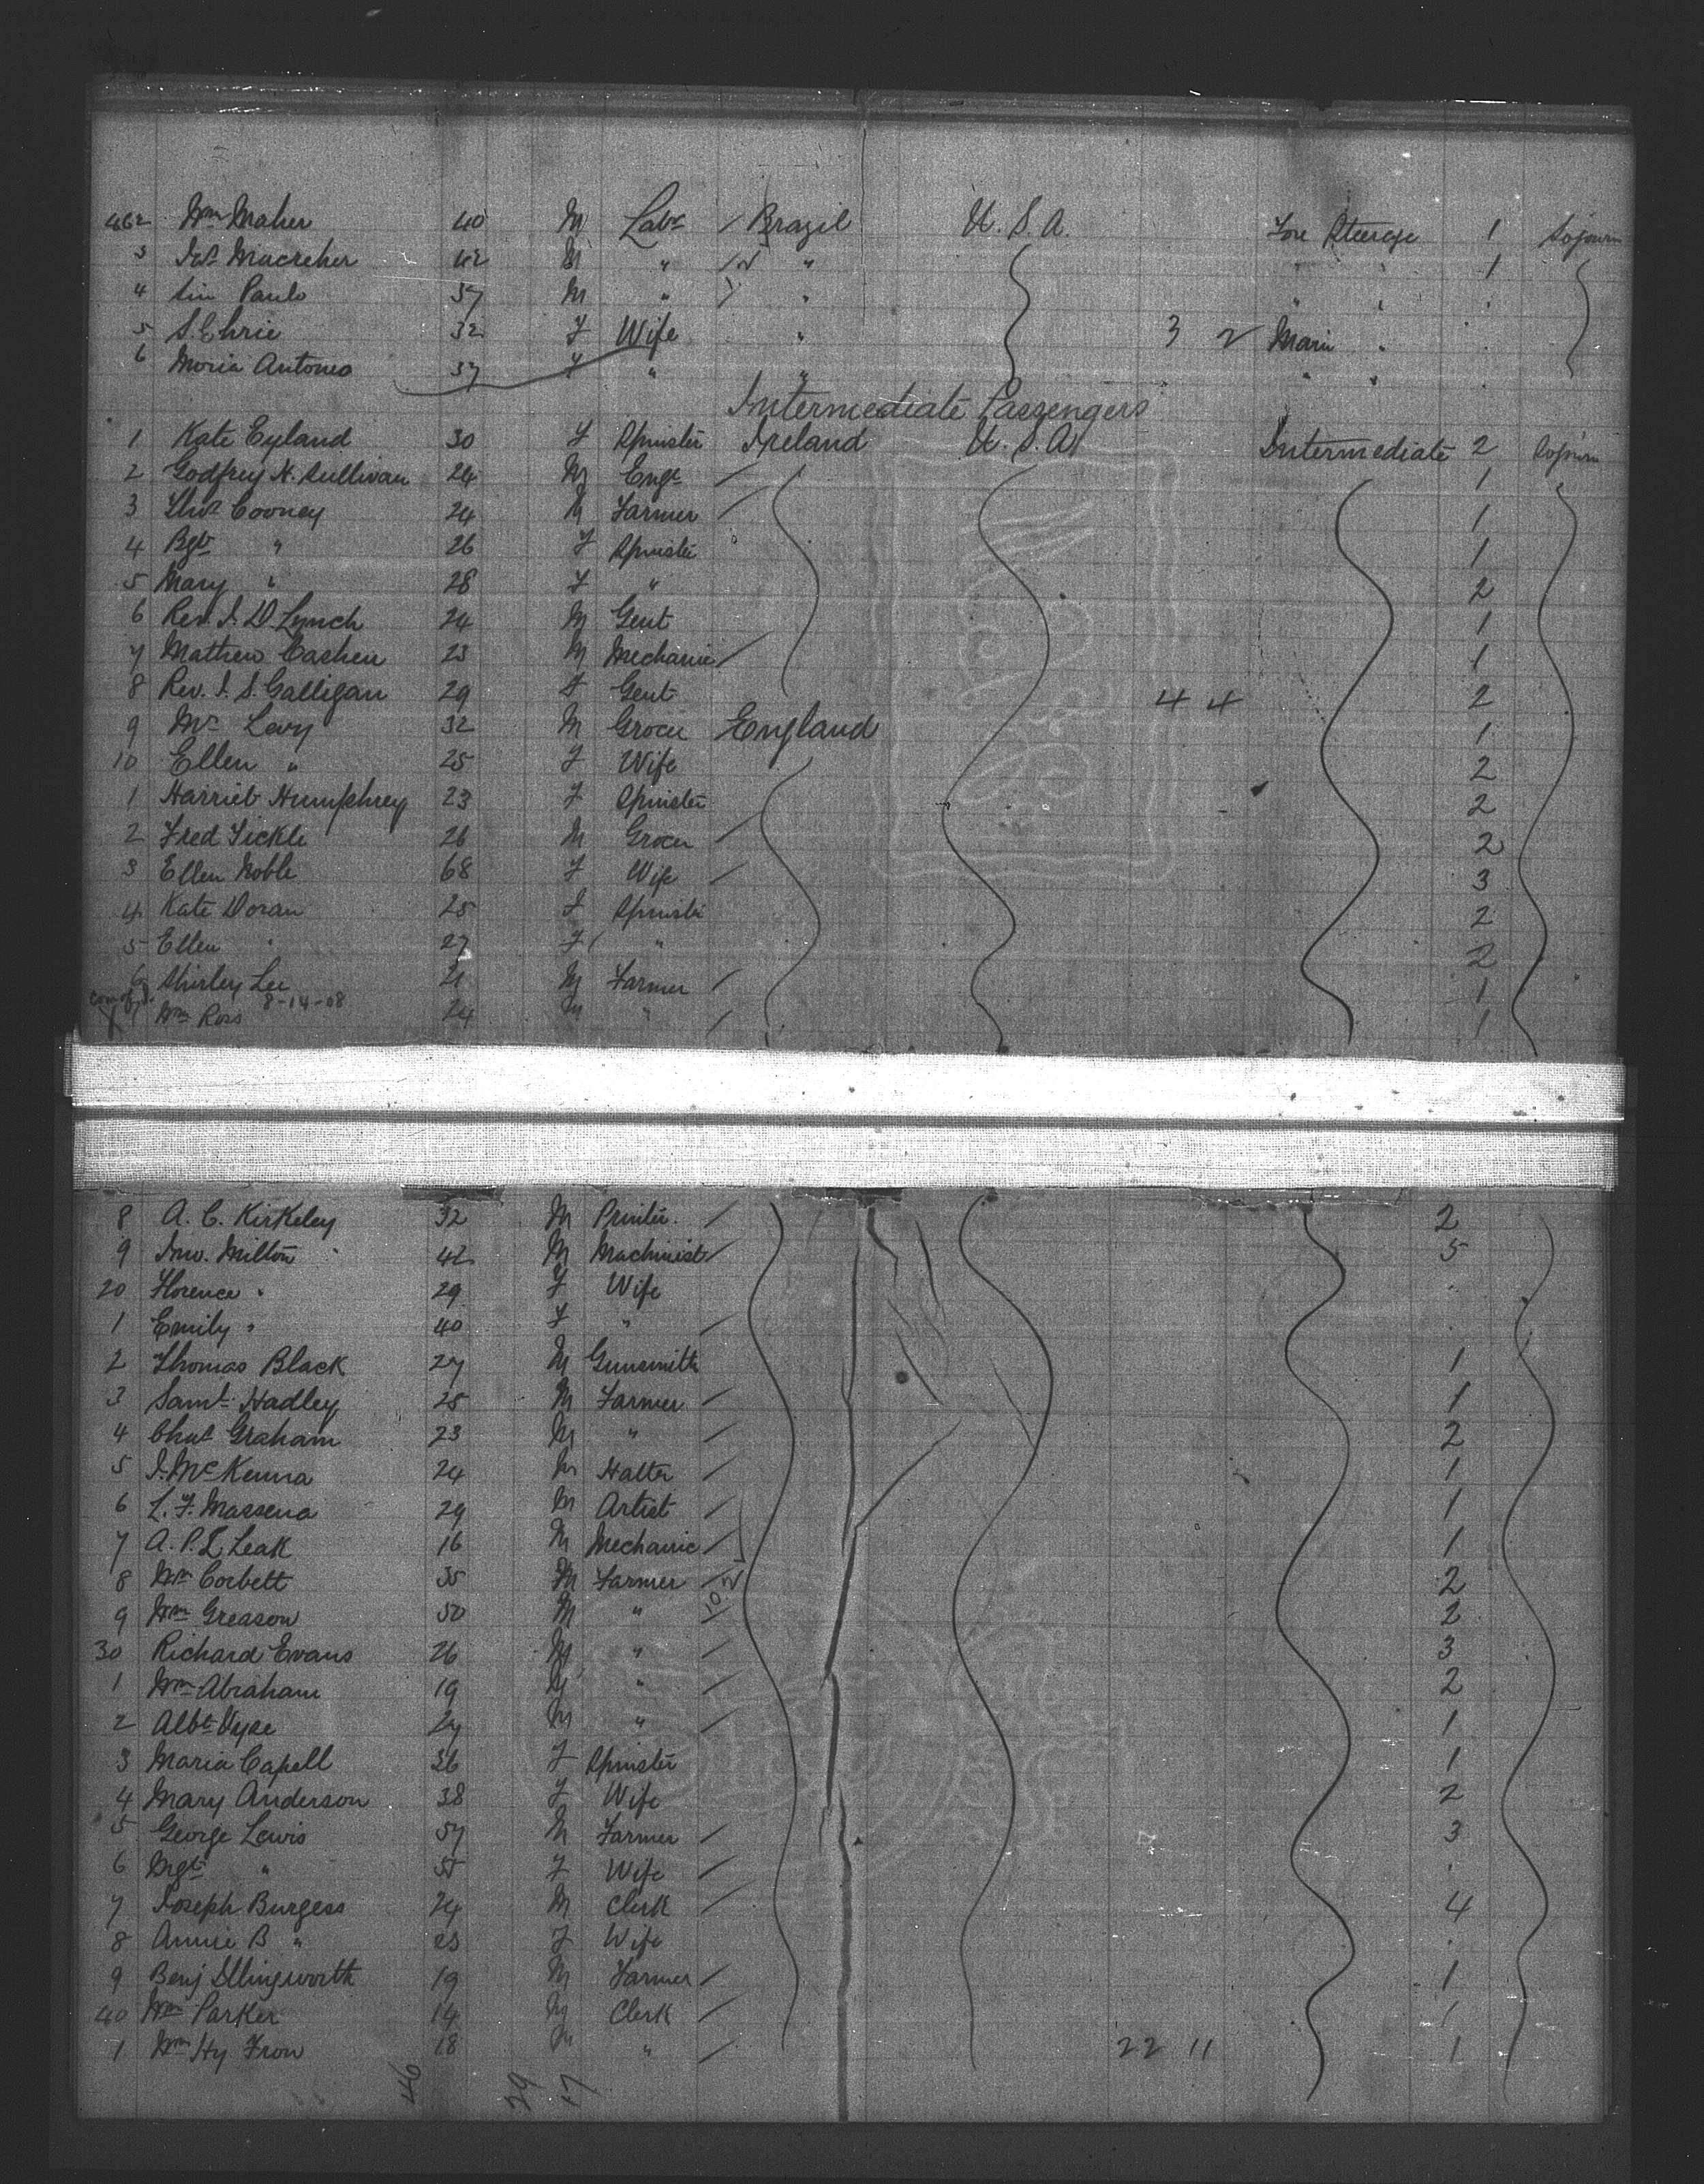 462 Wm Maher 40 M Labr / Brazil U. S. A. Fore Steerage 1 Sojourn
3 Jos Macreher 42 M " / " 1
4 Sin Paulo 37 M " "
5 S. Chrie 32 F Wife " 3 2 Main "
6 Moria Antoneo 37 F " " " "
Intermediate Passengers
1 Kate Eyland 30 F Spinster Ireland U. S. A Intermediate 2 Sojourn
2 Godfrey N. Sullivan 24 M Engr / 1
3 Thos Cooney 24 M Farmer / 1
4 Bgt " 26 F Spinster 1
5 Mary " 28 F " 2
6 Rev. J. D Lynch 24 M Gent 1
7 Mathew Cashen 23 M Mechanic / 1
8 Rev. J. S. Galligan 29 F Gent 4 4 2
9 Mr Levy 32 M Grocer England 1
10 Ellen " 25 F Wife 2
1 Harriet Humphrey 23 F Spinster 2
2 Fred Tickle 26 M Grocer / 2
3 Ellen Noble 68 F Wife / 3
4 Kate Doran 25 F Spinster 2
5 Ellen " 27 F " 2
6 Shirley Lee 21 M Farmer / 1
8-14-08
7 Wm Ross 24 M " / 1
8 A. C. Kirkeley 32 M Printer / 2
9 Jno. Milton 42 M Machinist / 5
20 Florence " 29 F Wife
1 Emily " 40 F " /
2 Thomas Black 27 M Gunsmith 1
3 Saml Hadley 25 M Farmer / 1
4 Chas Graham 23 M " / 2
5 J. McKenna 24 M Hatter / 1
6 L. F. Massena 29 M Artist / 1
7 A. P. I. Leak 16 M Mechanic / 1
8 Wm Corbett 35 M Farmer / 2
9 Wm Greason 50 M " / 2
30 Richard Evans 26 M " / 3
1 Wm Abraham 19 M " / 2
2 Albt Vyse 27 M " / 1
3 Maria Capell 26 F Spinster 1
4 Mary Anderson 38 F Wife 2
5 George Lewis 57 M Farmer / 3
6 Mgt " 55 F Wife /
7 Joseph Burgess 24 M Clerk / 4
8 Annie B " 23 F Wife
9 Benj Illingworth 19 M Farmer / 1
40 Wm Parker 14 M Clerk / 1
1 Wm Hy Fron 18 M " / 22 11 1
46 29 17